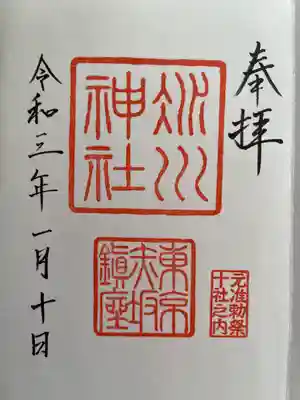 奉拝
氷川
神社
元准勅祭
十社之内
東京
赤坂
鎮座
令和三年一月十日